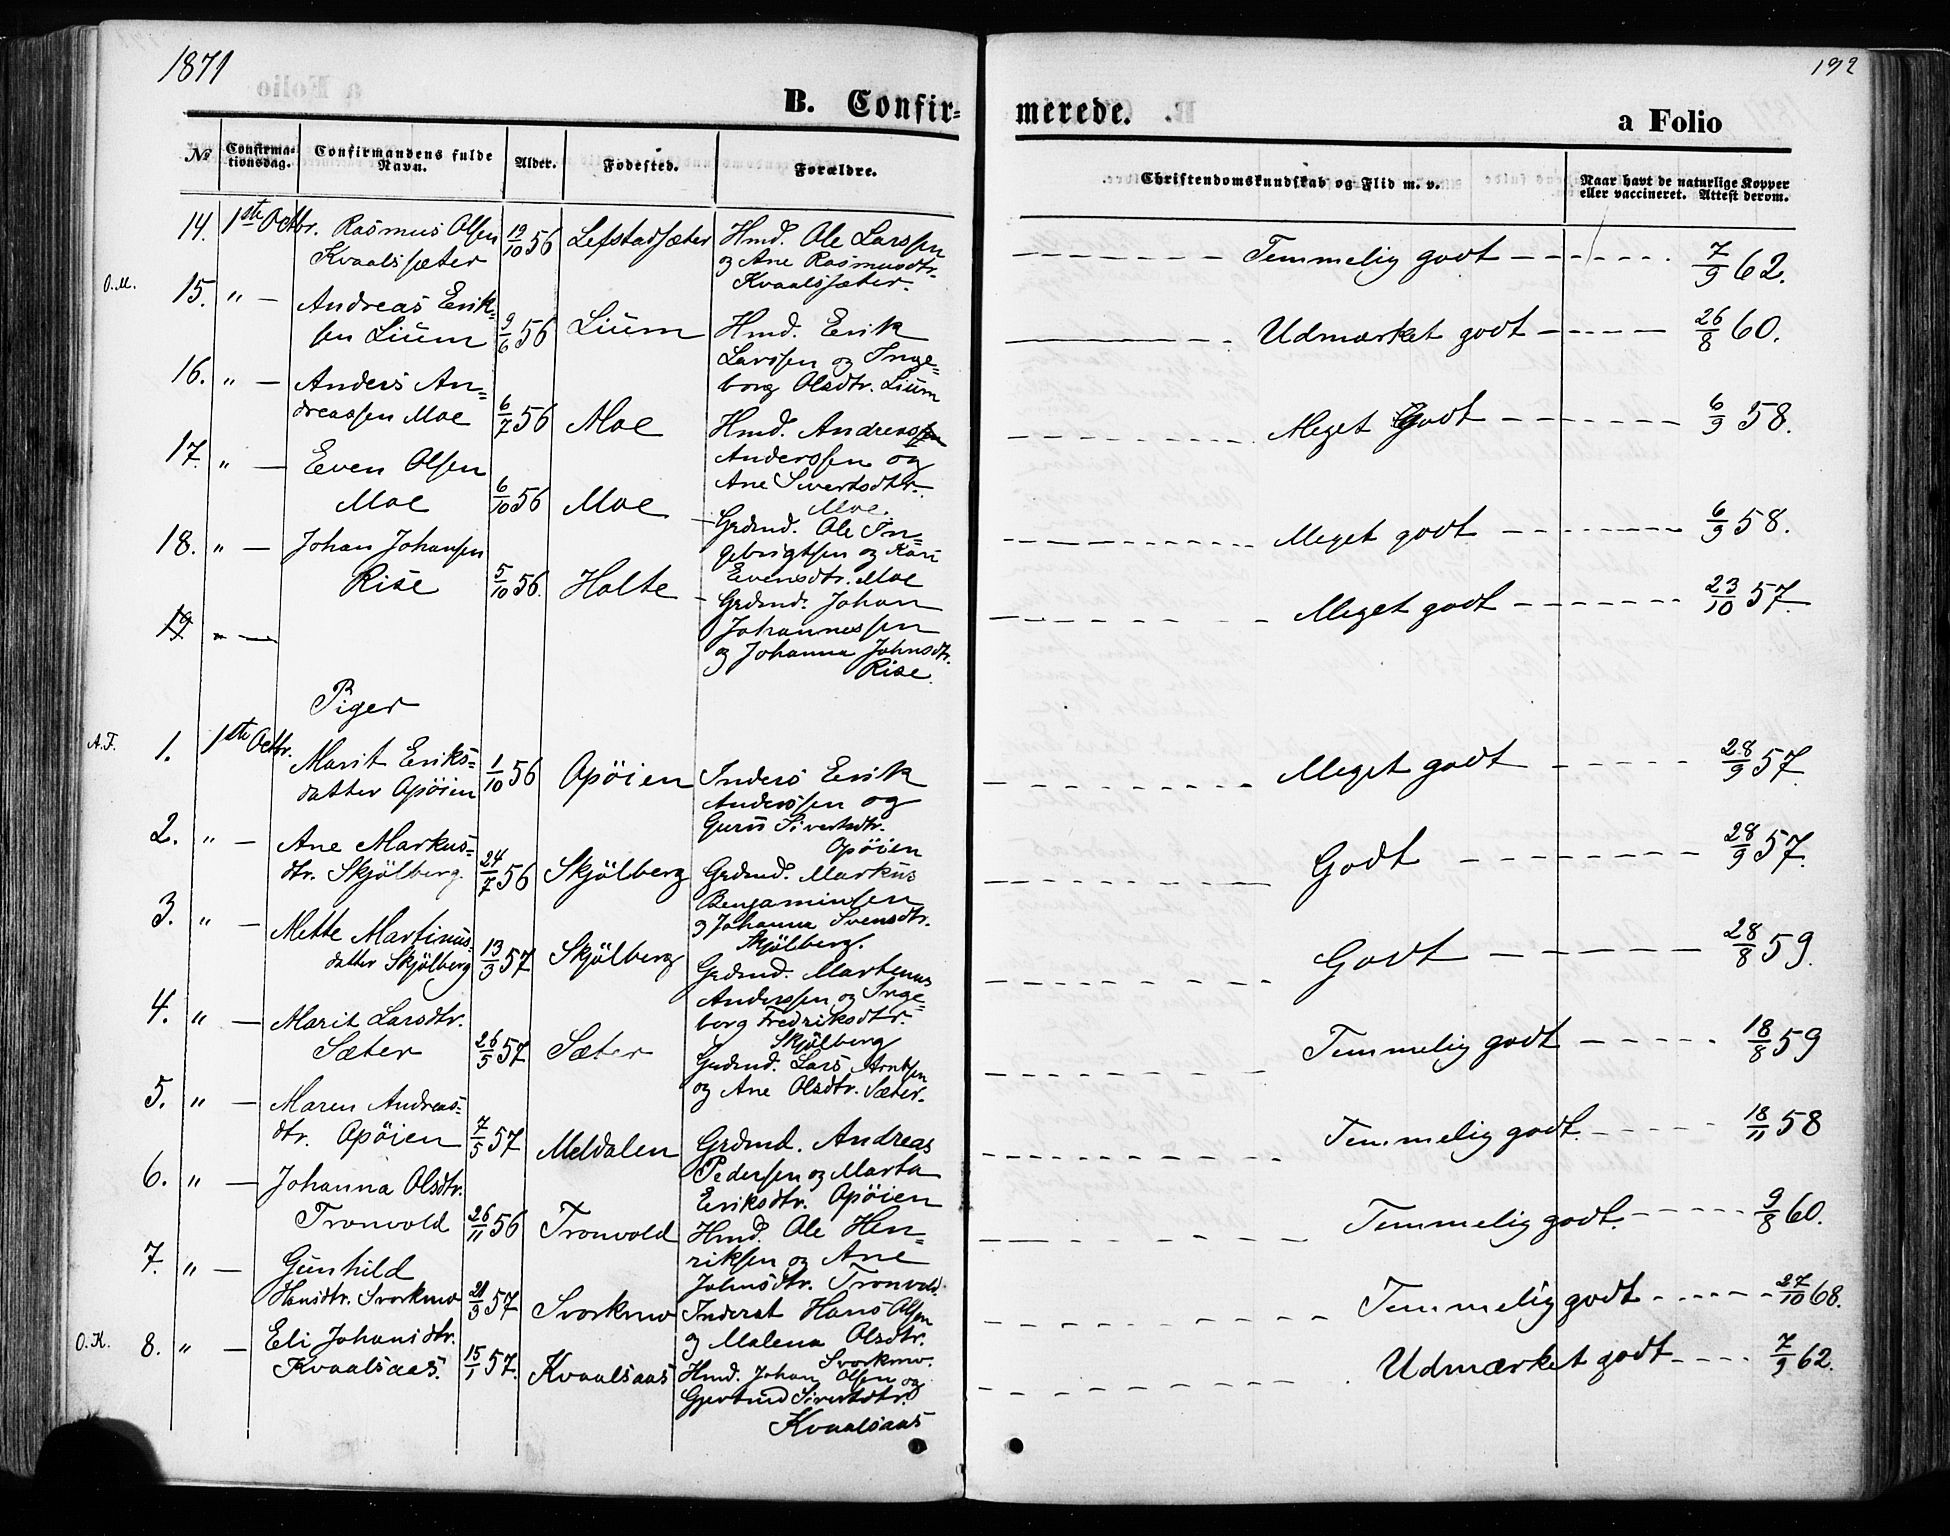 1871
192
B. Confir-
merede.
a Folio
No
Confirma-
tionsdag.
Confirmandens fulde
Navn.
Alder.
Fødested.
Forældre.
Christendomskundskab og Flid m. v.
Naar havt de naturlige Kopper
eller vaccineret. Attest derom.
14. 1ste Octbr. Rasmus Olsen
Kvaalssæter
19/10 56 Lefstadsæter
Hmd. Ole Larssen
og Ane Rasmusdtr.
Kvaalssæter.
Temmelig godt
7/9 62.
O.M. 15. " — Andreas Erik-
sen Lium
9/6 56 Lium
Hmd. Erik
Larssen og Inge-
borg Olsdtr. Lium
Udmærket godt
26/8 60.
16. " — Anders An-
dreassen Moe
6/7 56 Moe
Hmd. Andreas
Anderssen og
Ane Sivertsdtr.
Moe.
Meget Godt
6/9 58.
17. " — Even Olsen
Moe
6/10 56 Moe
Grdmd. Ole In-
gebrigtsen og Kari
Evensdtr. Moe
Meget godt
6/9 58.
18. " — Johan Johansen
Rise
5/10 56. Holte
Grdmd. Johan
Johannessen
og Johanna Johnsdtr.
Rise.
Meget godt
23/10 57.
19. " —
Piger
A.F. 1. 1ste Octbr. Marit Eriks-
datter Opöien
1/10 56 Opöien
Inders Erik
Anderssen og
Guru Sivertsdtr.
Opöien
Meget godt
28/9 57.
2. " — Ane Markus-
dtr. Skjölberg
24/7 56 Skjölberg
Grdmd. Markus
Benjaminsen
og Johanna Svensdtr.
Skjölberg.
Godt
28/9 57.
3. " — Mette Martinus-
datter Skjölberg
13/3 57 Skjölberg
Grdmd. Martinus
Anderssen og Inge-
borg Fredriksdtr.
Skjölberg
Godt
28/8 59.
4. " — Marit Larsdtr.
Sæter
26/5 57 Sæter
Grdmd. Lars Arntsen
og Ane Olsdtr. Sæter.
Temmelig godt
18/8 59
5. " — Maren Andreas-
dtr. Opöien
7/5 57 Meldalen
Grdmd. Andreas
Pedersen og Marta
Eriksdtr. Opöien
Temmelig godt.
18/11 58
6. " — Johanna Olsdtr.
Tronvold
26/11 56 Tronvold
Hmd. Ole Hen-
riksen og Ane
Johnsdtr. Tronvold.
Temmelig godt.
9/8 60.
7. " — Gunhild
Hansdtr. Svorkmo
21/3 57 Svorkmo
Inderst Hans Olsen
og Malena Olsdtr.
Svorkmo.
Temmelig godt
27/10 68.
O.K. 8. " — Eli Johansdtr.
Kvaalsaas.
15/1 57. Kvaalsaas
Hmd. Johan Olsen og
Gjertrud Sivertsdtr.
Kvaalsaas
Udmærket godt
7/9 62.